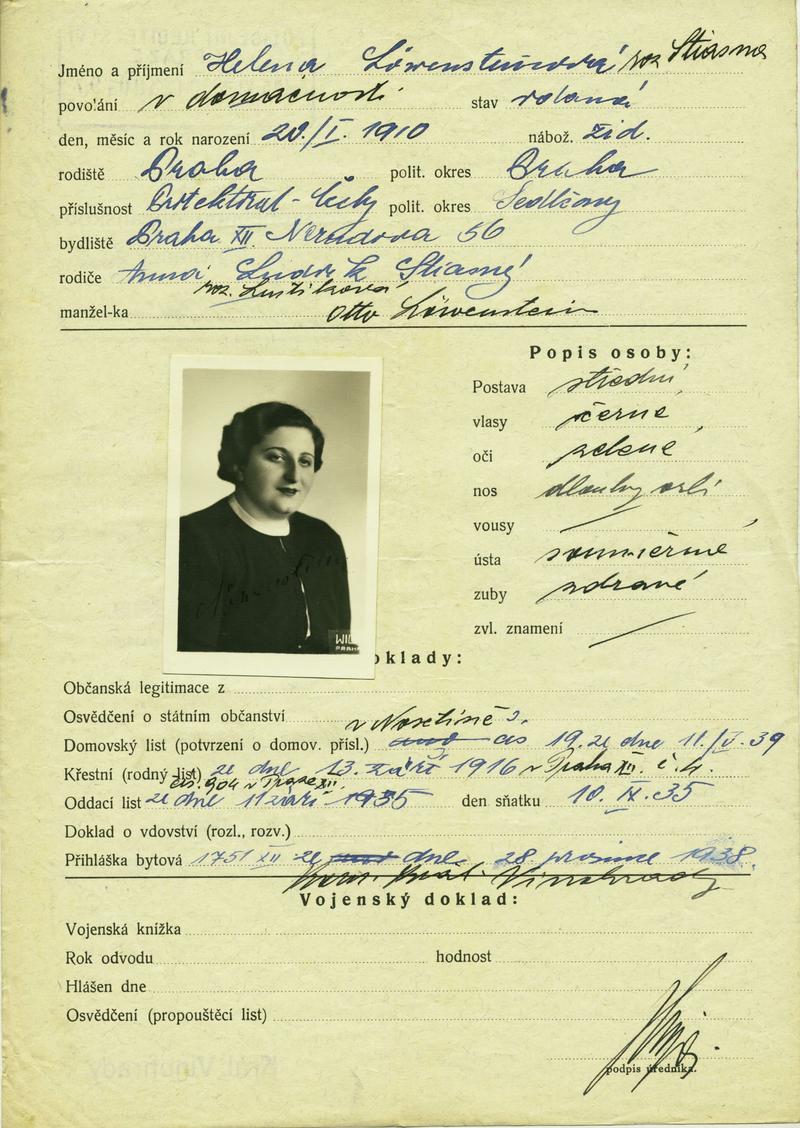 Jméno a příjmení Helena Löwensteinová roz Stiasná
povolání v domácnosti stav vdaná
den, měsíc a rok narození 20./I. 1910 nábož. žid.
rodiště Praha polit. okres Praha
příslušnost Protektorat-Čechy polit. okres Sedlčany
bydliště Praha XII. Nerudova 56
rodiče Anna Ludvík Stiasný
roz. Lustiková
manžel-ka Otto Löwenstein
Popis osoby:
Postava střední
vlasy černé
oči zelené
nos dlouhý orlí
vousy
ústa souměrné
zuby zdravé
zvl. znamení
WIL
PRAHA
oklady:
Občanská legitimace z
Osvědčení o státním občanství
v Nosetíně
Domovský list (potvrzení o domov. přísl.) čís 19. ze dne 11./V. 39
Křestní (rodný list) ze dne 13. září 1916 v Praha XII. č. 4.
čís. 904 v Praze XII.
Oddací list ze dne 11 září 1935 den sňatku 10. IX. 35
Doklad o vdovství (rozl., rozv.)
Přihláška bytová 1751 XII ze dne 28. prosince 1938.
Vinohrady
Vojenský doklad:
Vojenská knížka
Rok odvodu hodnost
Hlášen dne
Osvědčení (propouštěcí list)
podpis úředníka.
Král. Vinohrady